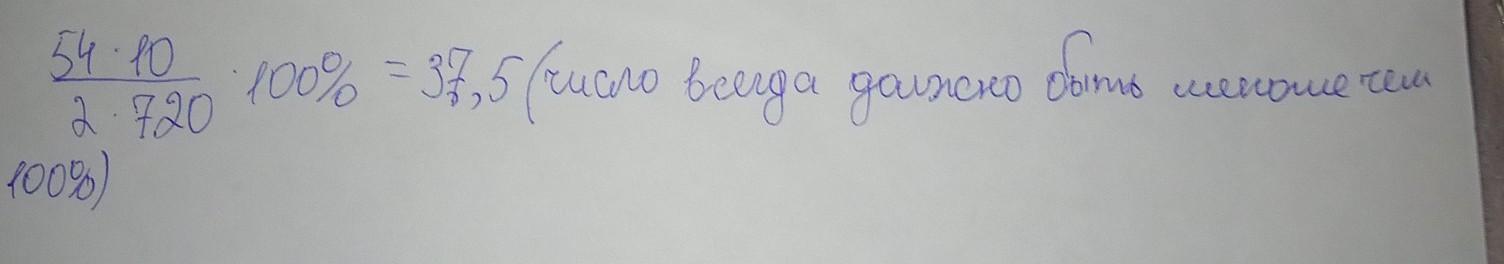 54 · 10 / 2 · 720 · 100% = 37,5 (число всегда должно быть меньше чем
100%)